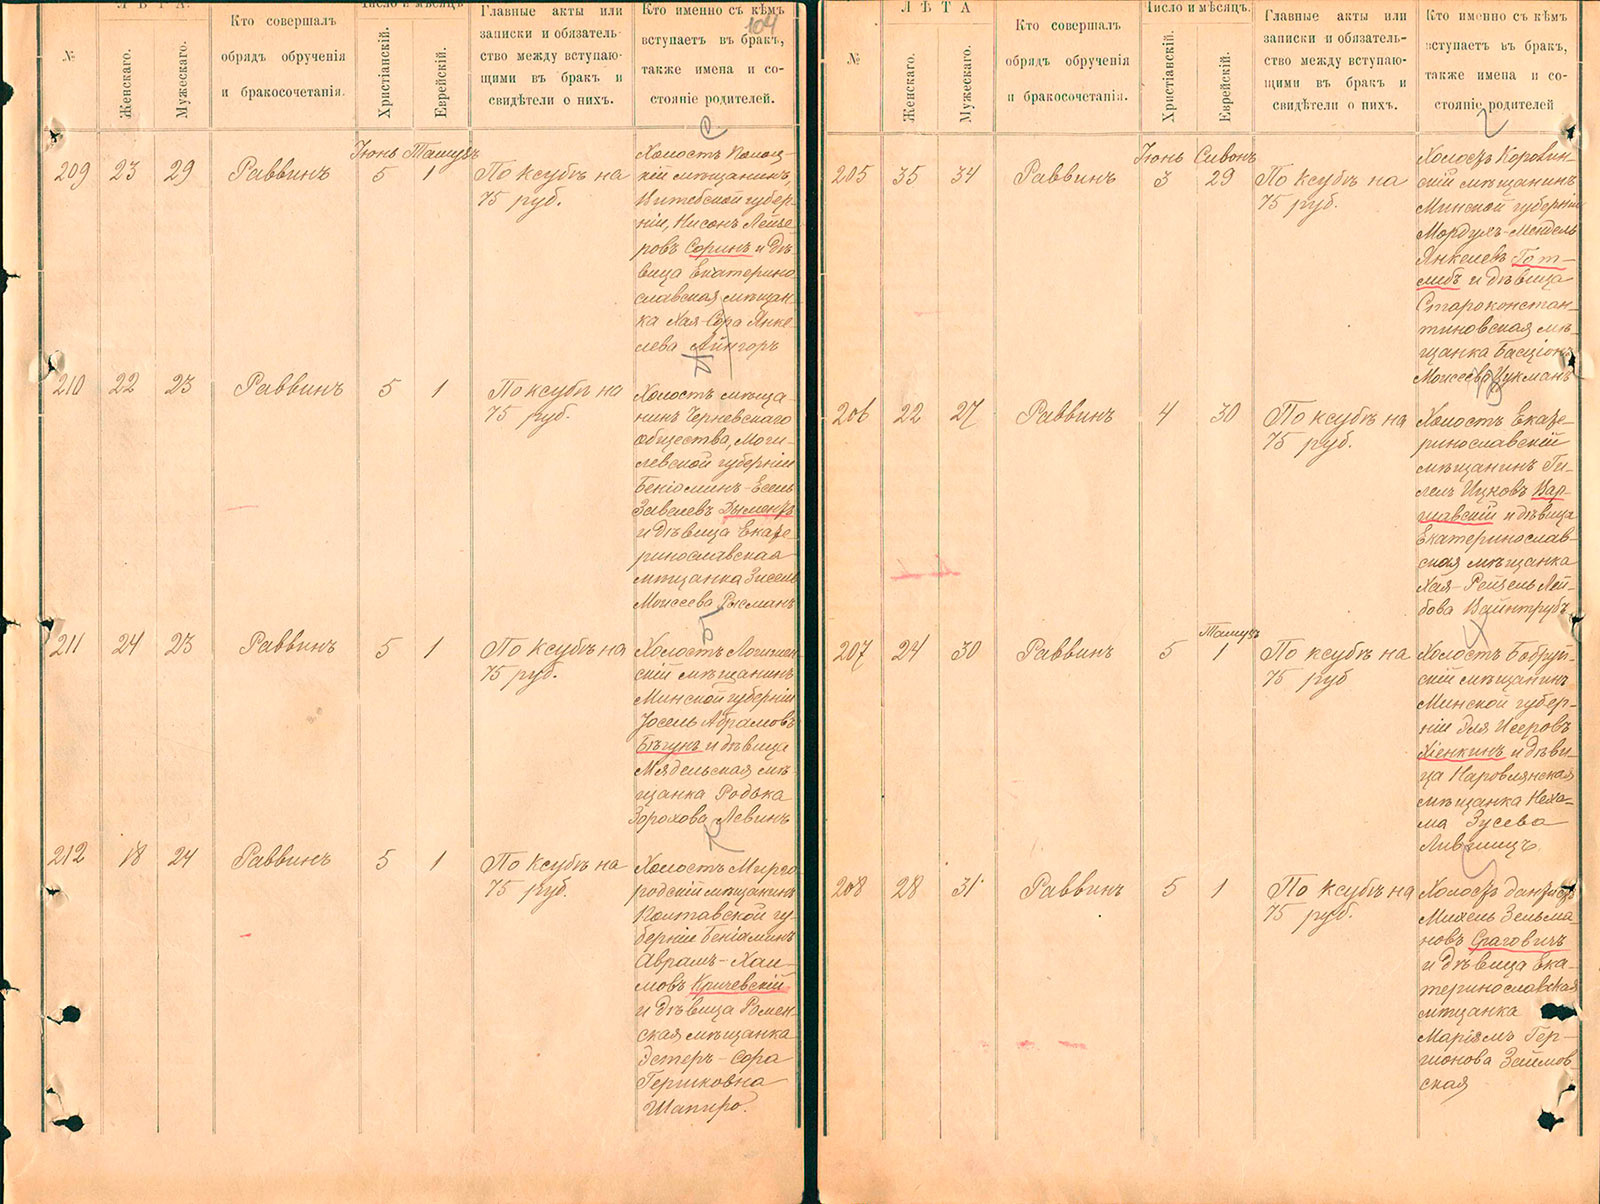 104
№
ЛѢТА.
Женскаго.
Мужескаго.
Кто совершалъ
обрядъ обрученія
и бракосочетанія.
Число и мѣсяцъ
Христіанскій.
Еврейскій.
Главные акты или
записки и обязатель-
ство между вступаю-
щими въ бракъ и
свидѣтели о нихъ.
Кто именно съ кѣмъ
вступаетъ въ бракъ,
также имена и со-
стояніе родителей.
Іюнь Тамузъ
209 23 29 Раввинъ 5 1 По ксубѣ на
75 руб.
Холостъ Полоц-
кій мѣщанинъ,
Витебской губер-
ніи, Нисонъ Лейзе-
ровъ Соринъ и дѣ-
вица Екатерино
славская мѣщан-
ка Хая-Сора Янке-
лева Айнгоръ
210 22 23 Раввинъ 5 1 По ксубѣ на
75 руб.
Холостъ мѣща-
нинъ Черневскаго
общества, Моги-
левской губерніи
Беніоминъ-Есель
Завелевъ Дыментъ
и дѣвица Екате-
ринославская
мѣщанка Зисель
Моисеева Рысманъ
211 24 23 Раввинъ 5 1 По ксубѣ на
75 руб.
Холостъ
скій мѣщанинъ
Минской губерніи
Іосель Абрамовъ
Бѣгунъ и дѣвица
Мядельская мѣ-
щанка Родька
Зорохова Левинъ
212 18 24 Раввинъ 5 1 По ксубѣ на
75 руб.
Холостъ Мирго
родскій мѣщанинъ
Полтавской гу-
берніи Беніаминъ
Аврамъ-Хаи-
мовъ Кричевскій
и дѣвица Ромен-
ская мѣщанка
Эстеръ-Сора
Гершковна
Шапиро.
№
ЛѢТА
Женскаго.
Мужескаго.
Кто совершалъ
обрядъ обрученія
и бракосочетанія.
Число и мѣсяцъ.
Христіанскій.
Еврейскій.
Главные акты или
записки и обязатель-
ство между вступаю-
щими въ бракъ и
свидѣтели о нихъ.
Кто именно съ кѣмъ
вступаетъ въ бракъ,
также имена и со-
стояніе родителей
Іюнь Сивонъ
205 35 34 Раввинъ 3 29 По ксубѣ на
75 руб.
Холостъ
скій мѣщанинъ
Минской губерніи
Мордухъ-Мендель
Янкелевъ Гот-
либъ и дѣвица
Староконстан-
тиновская мѣ-
щанка
Моисеева Цукманъ
206 22 27 Раввинъ 4 30 По ксубѣ на
75 руб.
Холостъ Екате-
ринославскій
мѣщанинъ Ги-
лель Ицковъ Вар-
шавскій и дѣвица
Екатеринослав-
ская мѣщанка
Хая-Рейзель Лей-
бова Вайнтрубъ
Тамузъ
207 24 30 Раввинъ 5 1 По ксубѣ на
75 руб
Холостъ Бобруй-
скій мѣщанинъ
Минской губер-
ніи Эля Исеровъ
Хіенкинъ и дѣви-
ца Наровлянская
мѣщанка Неха-
ма Зусева
Лившицъ
208 28 31 Раввинъ 5 1 По ксубѣ на
75 руб.
Холостъ дантистъ
Михель Зельма-
новъ Сраговичъ
и дѣвица Ека-
теринославская
мѣщанка
Маріямъ Гер-
шонова Заимов
ская